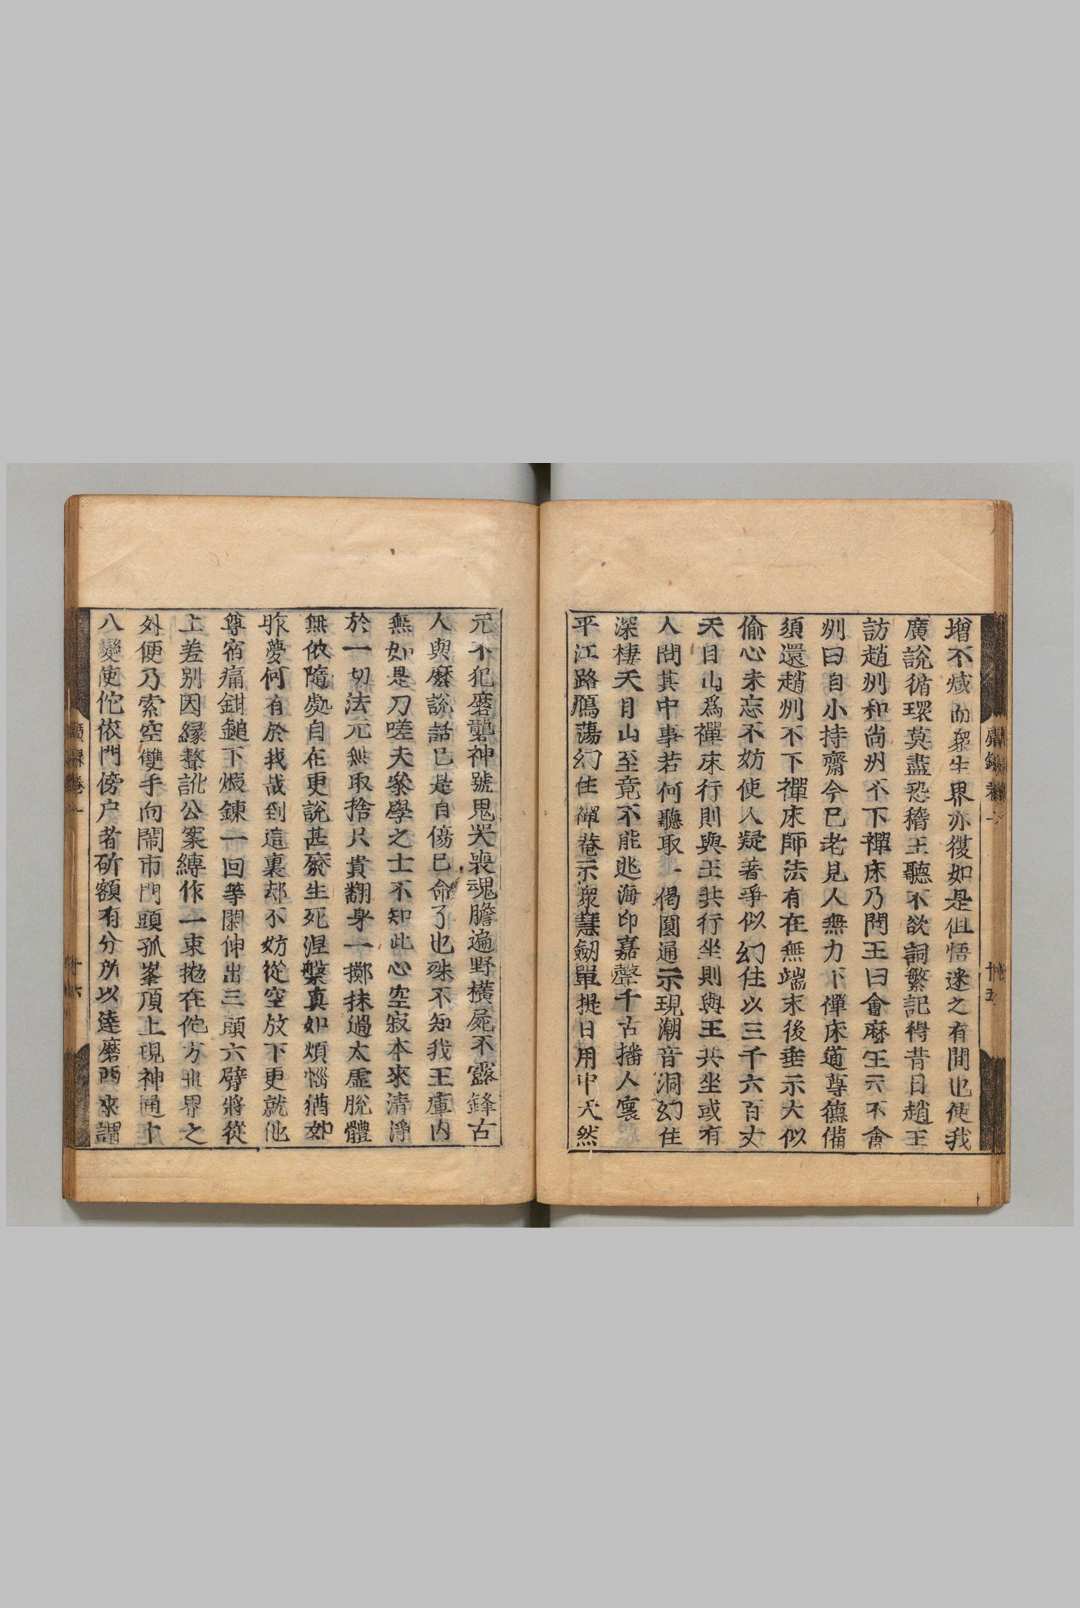 增不減而衆生界亦復如是但悟迷之有間也使我
廣說循環莫盡恐稽王聽不欲詞繁記得昔日趙王
訪趙州和尚州不下禪床乃問王曰會麽王云不會
州曰自小持齋今已老見人無力下禪床道尊德備
須還趙州不下禪床師法有在無端末後垂示大似
偷心未忘不妨使人疑著爭似幻住以三千六百丈
天目山爲禪床行則與王共行坐則與王共坐或有
人問其中事若何聽取一偈圓通示現潮音洞幻住
深棲天目山至竟不能逃海印嘉聲千古播人寰
平江路鴈蕩幻住禪菴示衆慧劒單提日用中天然
元不犯磨礱神號鬼哭喪魂膽遍野橫屍不露鋒古
人與麽說話已是自傷己命了也殊不知我王庫內
無如是刀嗟夫叅學之士不知此心空寂本來清淨
於一切法元無取捨只貴翻身一擲抹過太虛脫體
無依隨處自在更說甚麽生死涅槃真如煩惱猶如
昨夢何有於我哉到這裏却不妨從空放下更就他
尊宿痛鉗鎚下煆鍊一回等閑伸出三頭六臂將從
上差別因緣聱訛公案縛作一束抛在佗方世界之
外便乃索空雙手向鬧市門頭孤峯頂上現神通十
八變使佗依門傍户者斫額有分所以達磨西來謂
廣録卷一
十五
廣録卷一
十六